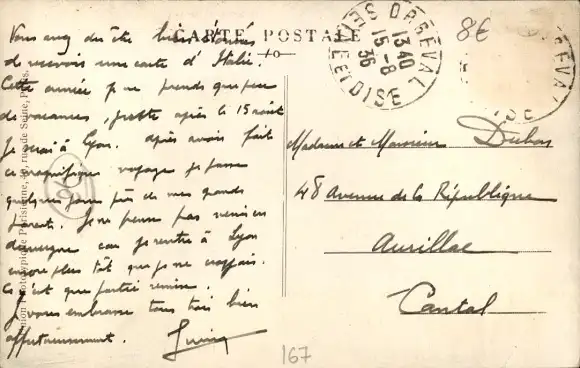 CARTE POSTALE
Vous avez dû être bien étonnés
de recevoir une carte d'Italie.
Cette année je ne prends que peu
de vacances, juste après le 15 août
je serai à Lyon. Après avoir fait
ce magnifique voyage je passe
quelques jours près de mes grands
parents. Je ne pense pas venir en
Auvergne car je rentre à Lyon
encore plus tôt que je ne croyais.
Ce n'est que partie remise.
Je vous embrasse tous trois bien
affectueusement.
ORGEVAL
1340
15-8
36
SEINE ET OISE
8€
Madame et Monsieur Dubois
48 Avenue de la République
Aurillac
Cantal
167